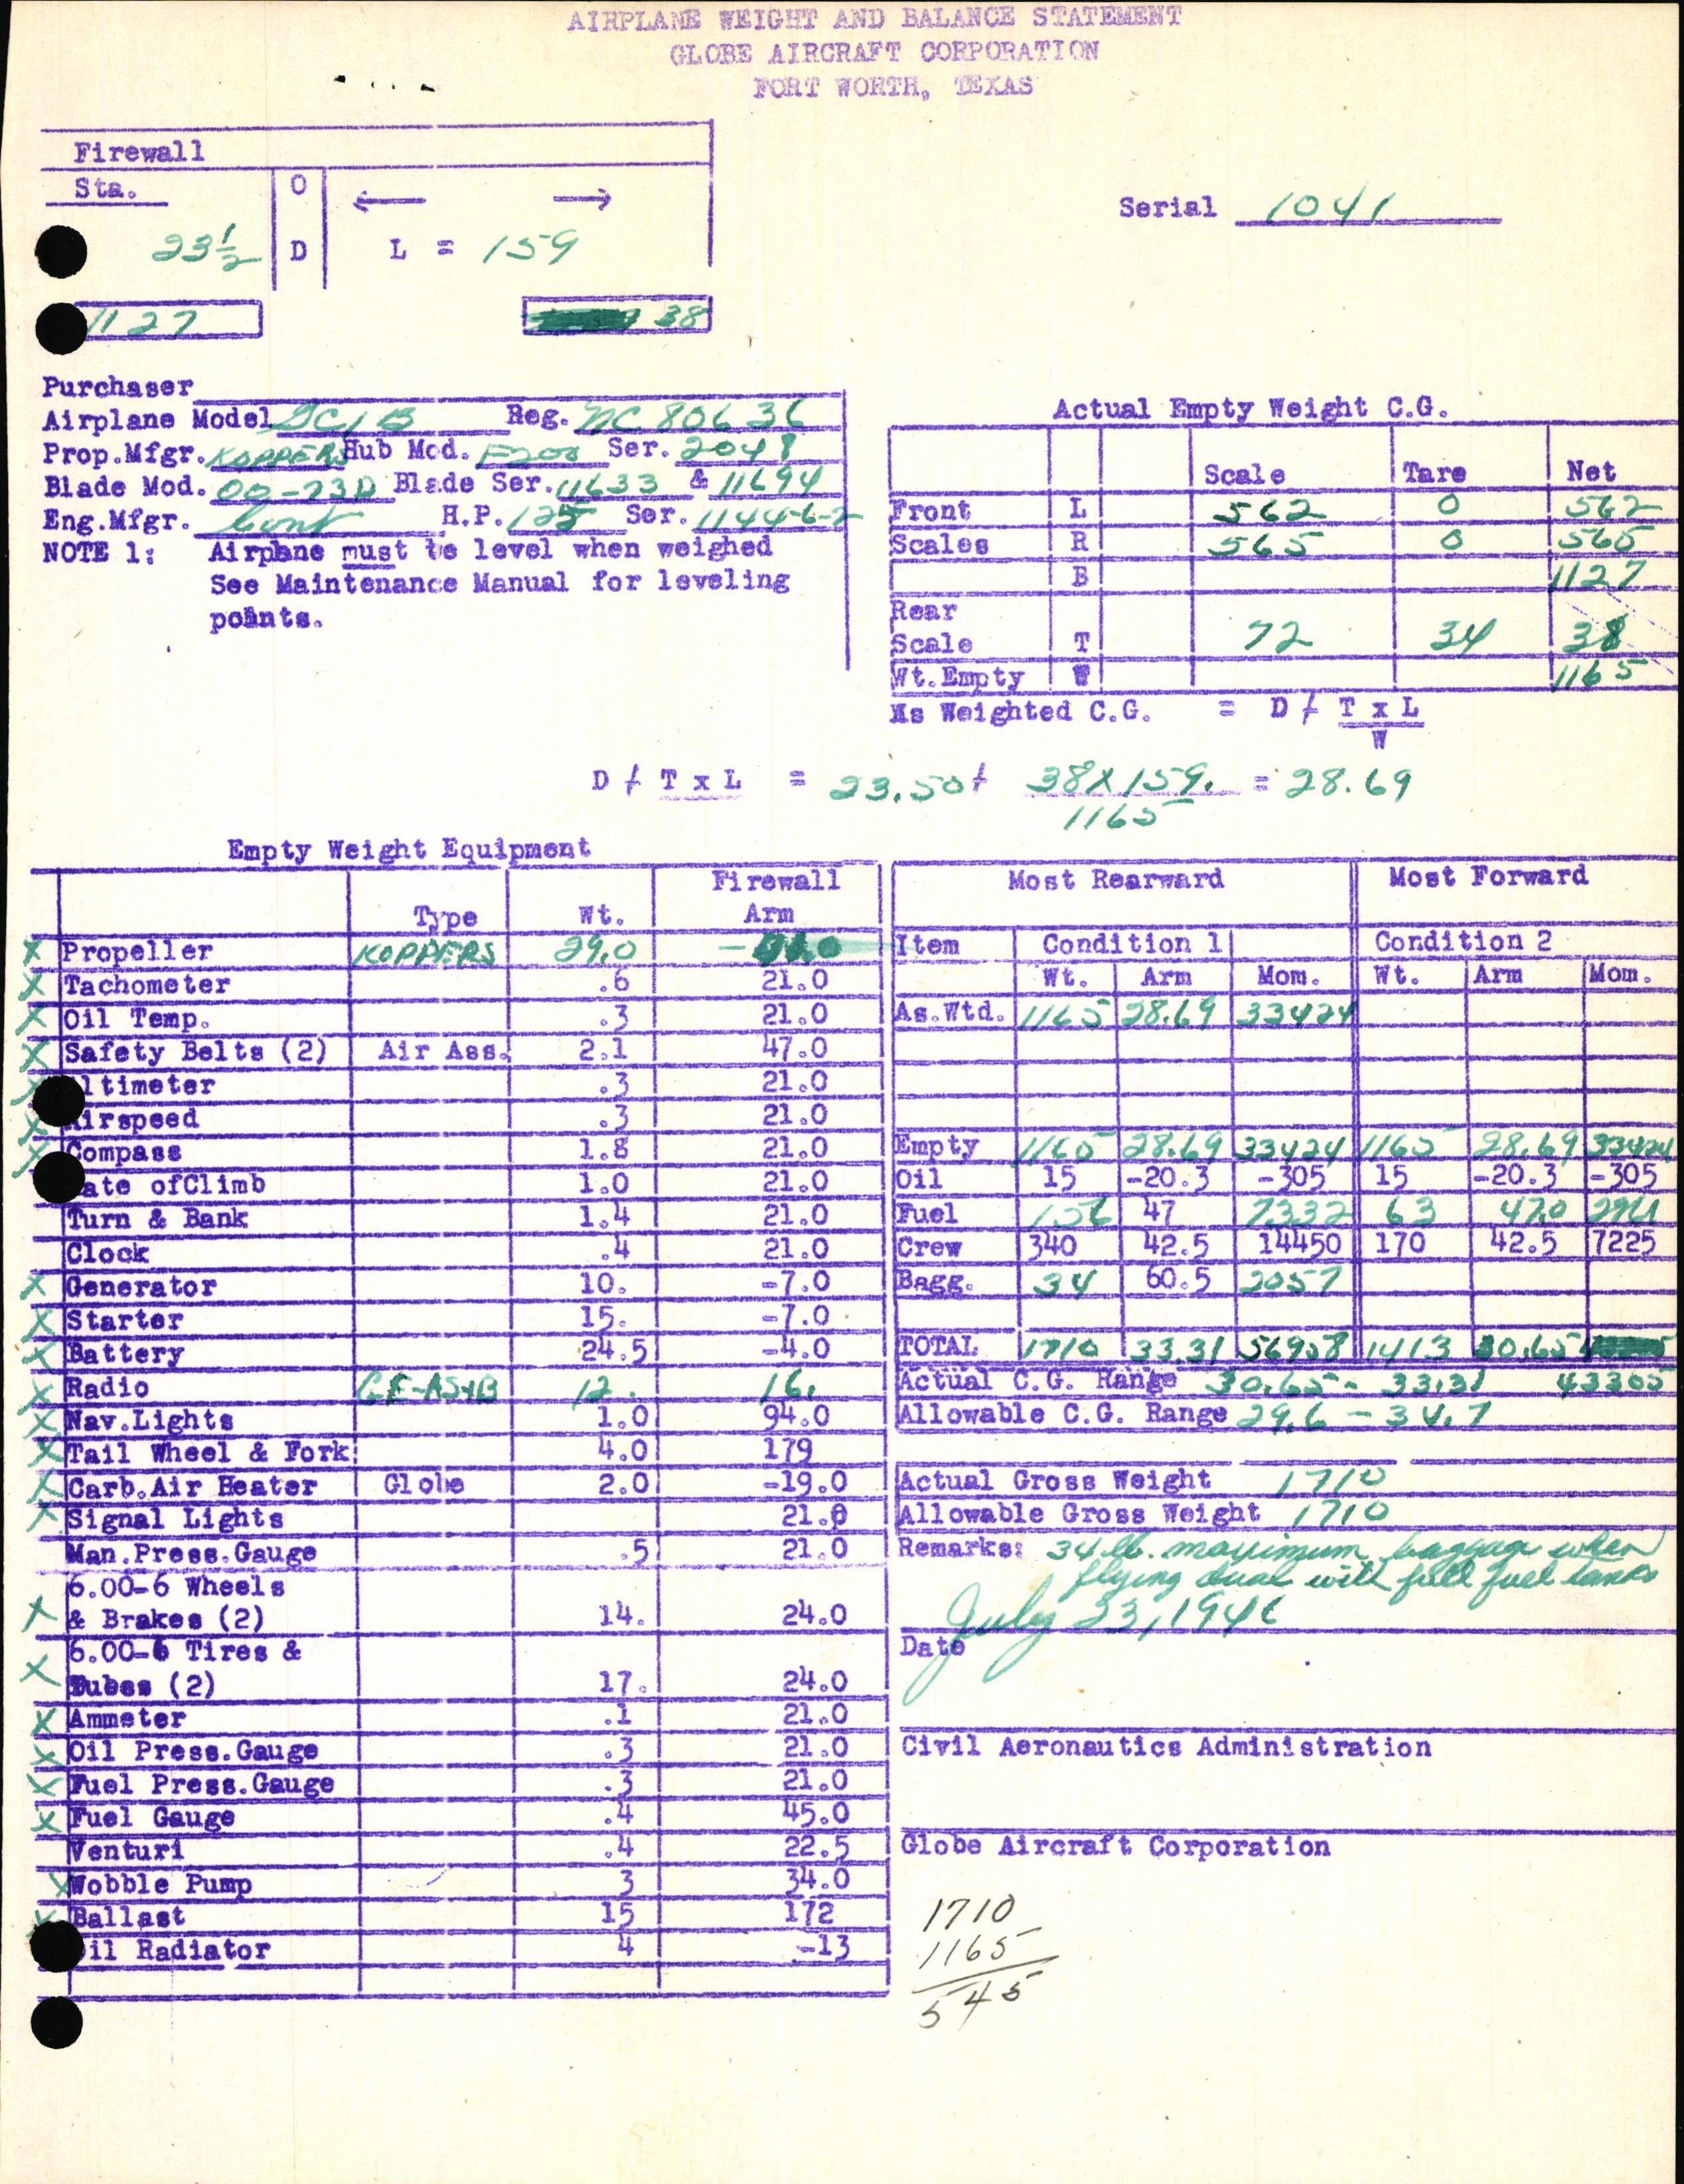 AIRPLANE WEIGHT AND BALANCE STATEMENT
GLOBE AIRCRAFT CORPORATION
FORT WORTH, TEXAS
Firewall
Sta. O ← →
23½ D L = 159
1127 38
Serial 1041
Purchaser
Airplane Model GC1B Reg. NC 80636
Prop.Mfgr. KOPPERS Hub Mod. F200 Ser. 2048
Blade Mod. 00-73D Blade Ser. 11633 & 11694
Eng.Mfgr. Cont H.P. 125 Ser.
NOTE 1: Airplane must be level when weighed
See Maintenance Manual for leveling
points.
Actual Empty Weight C.G.
Scale Tare Net
Front L 562 0 562
Scales R 565 0 565
B 1127
Rear
Scale T 72 34 38
Wt.Empty W 1165
As Weighted C.G. = D / T x L
W
D / T x L = 23.50 / 38 X 159. = 28.69
1165
Empty Weight Equipment
Firewall
Type Wt. Arm
X Propeller KOPPERS 29.0
X Tachometer .6 21.0
X Oil Temp. .3 21.0
X Safety Belts (2) Air Ass. 2.1 47.0
X ltimeter .3 21.0
X irspeed .3 21.0
X Compass 1.8 21.0
ate ofClimb 1.0 21.0
Turn & Bank 1.4 21.0
Clock .4 21.0
X Generator 10. -7.0
X Starter 15. -7.0
X Battery 24.5 -4.0
X Radio 12. 16.
X Nav.Lights 1.0 94.0
X Tail Wheel & Fork 4.0 179
X Carb.Air Heater Globe 2.0 -19.0
X Signal Lights 21.0
Man.Press.Gauge .5 21.0
6.00-6 Wheels
X & Brakes (2) 14. 24.0
6.00-6 Tires &
X Tubes (2) 17. 24.0
X Ammeter .1 21.0
X Oil Press.Gauge .3 21.0
X Fuel Press.Gauge .3 21.0
X Fuel Gauge .4 45.0
Venturi .4 22.5
X Wobble Pump 3 34.0
X Ballast 15 172
il Radiator 4 -13
Most Rearward Most Forward
Item Condition 1 Condition 2
Wt. Arm Mom. Wt. Arm Mom.
As.Wtd. 1165 28.69 33424
Empty 1165 28.69 33424 1165 28.69 33424
Oil 15 -20.3 -305 15 -20.3 -305
Fuel 156 47 7332 63 47.0 2961
Crew 340 42.5 14450 170 42.5 7225
Bagg. 34 60.5 2057
TOTAL 1710 33.31 56958 1413 30.65
Actual C.G. Range 30.65 - 33.31 43305
Allowable C.G. Range 29.6 - 34.7
Actual Gross Weight 1710
Allowable Gross Weight 1710
Remarks: 34 lb. maximum baggage when
flying dual with full fuel tanks
July 23, 1946
Date
Civil Aeronautics Administration
Globe Aircraft Corporation
1710
1165
545